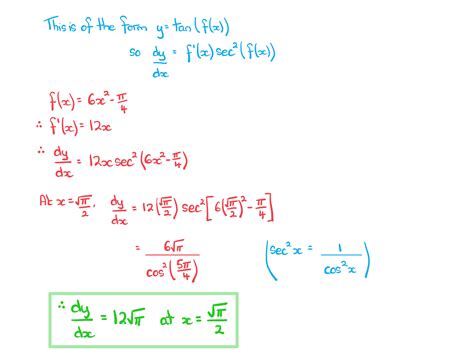 This is of the form y = tan(f(x))
so dy/dx = f'(x) sec²(f(x))
f(x) = 6x² - π/4
∴ f'(x) = 12x
∴ dy/dx = 12x sec²(6x² - π/4)
At x = √π/2, dy/dx = 12(√π/2) sec²[6(√π/2)² - π/4]
= 6√π / cos²(5π/4) (sec²x = 1/cos²x)
∴ dy/dx = 12√π at x = √π/2